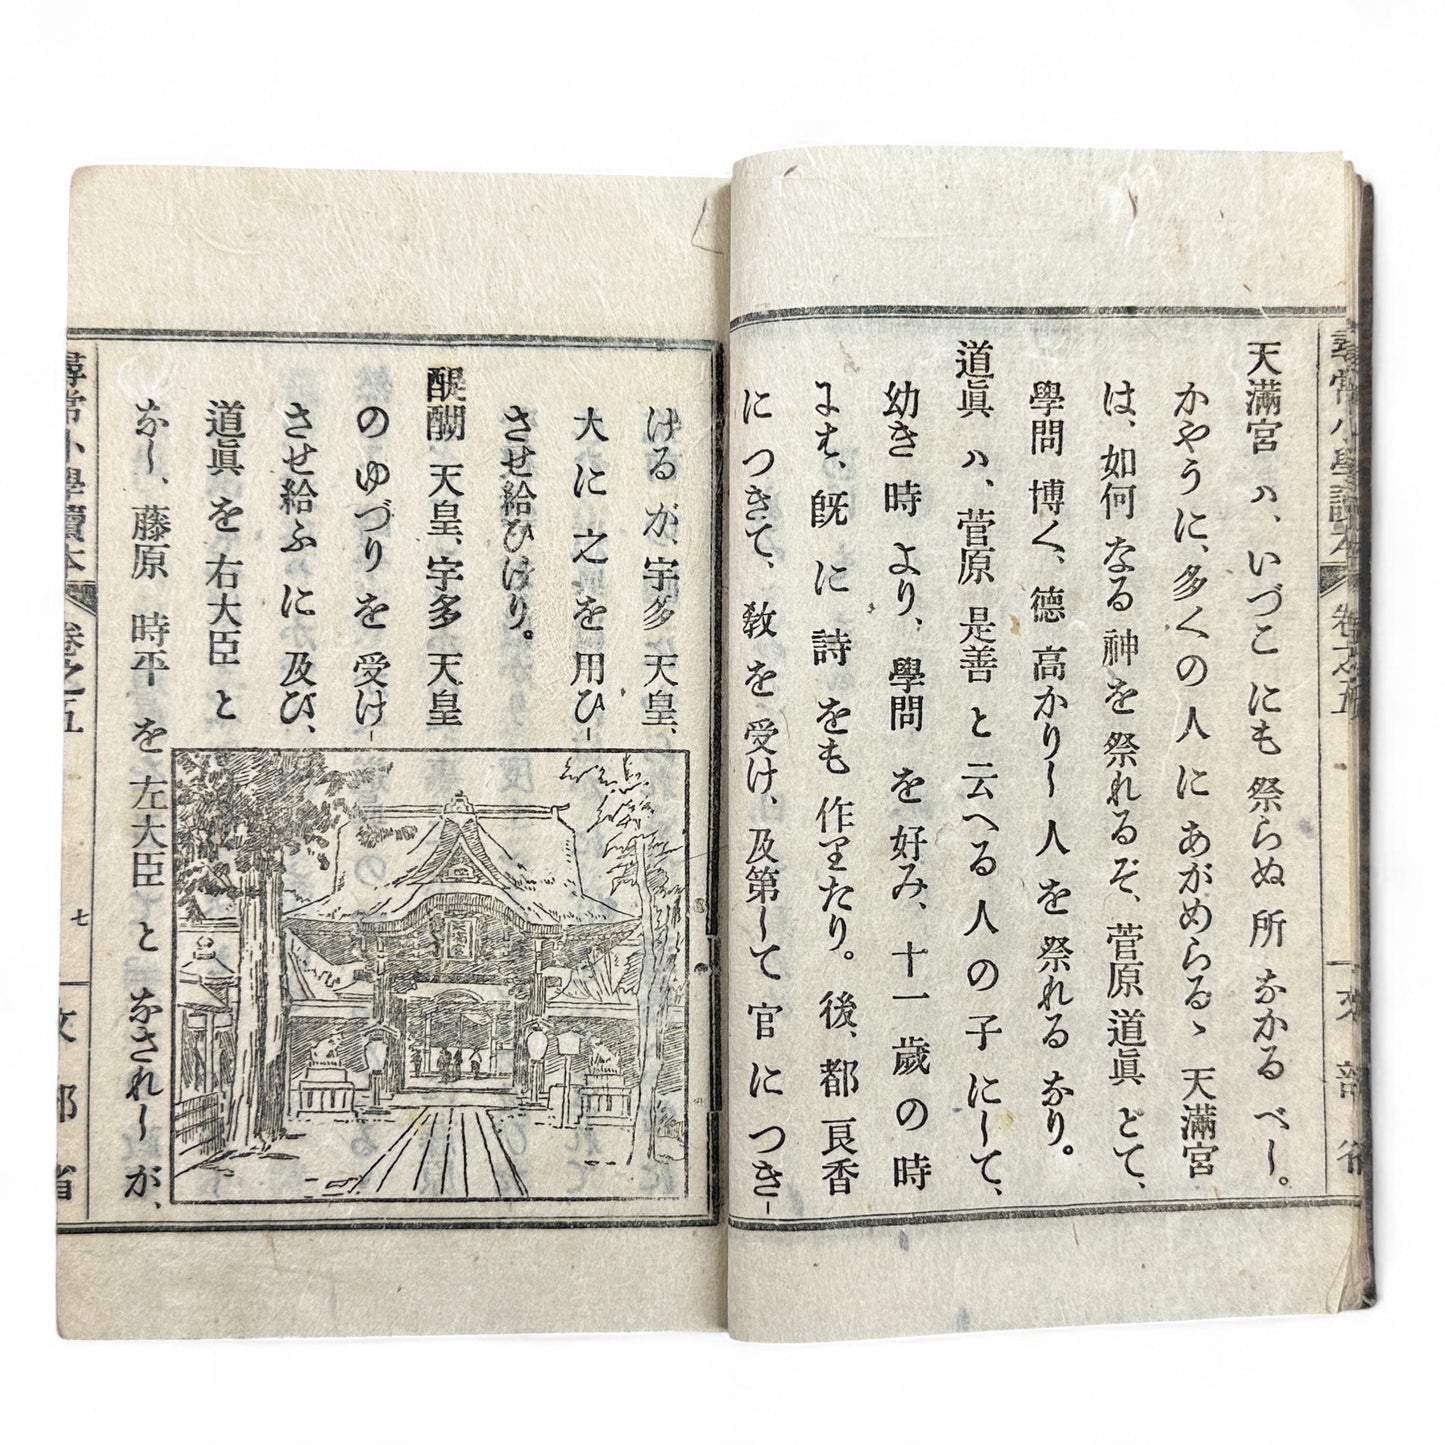 天滿宮ハ、いづこにも祭らぬ所なかるべし。
かやうに、多くの人にあがめらるゝ天滿宮
は、如何なる神を祭れるぞ、菅原道眞とて、
學問博く、德高かりし人を祭れるなり。
道眞ハ、菅原是善と云へる人の子にして、
幼き時より、學問を好み、十一歲の時
にハ、旣に詩をも作りたり。後、都良香
につきて、敎を受け、及第して官につき-
けるが、宇多天皇、
大に之を用ひ-
させ給ひけり。
醍醐天皇、宇多天皇
のゆづりを受け-
させ給ふに及び、
道眞を右大臣と
なし、藤原時平を左大臣となされしが、
尋常小學讀本
卷之五
七
文部省